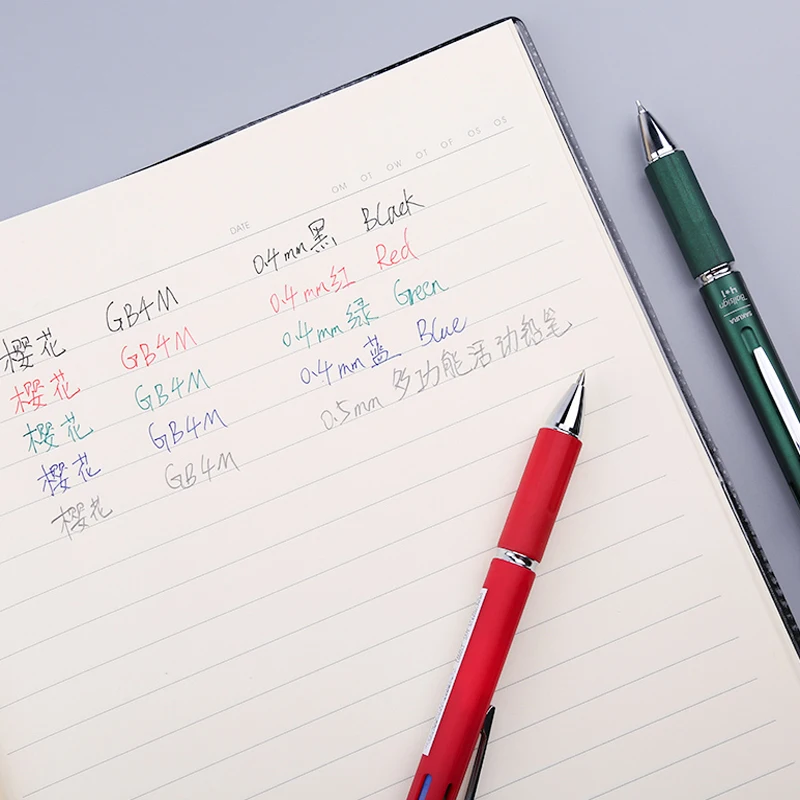 OM OT OW OT OF OS OS
DATE
樱花 GB4M 0.4mm黑 Black
樱花 GB4M 0.4mm红 Red
樱花 GB4M 0.4mm绿 Green
樱花 GB4M 0.4mm蓝 Blue
樱花 GB4M 0.5mm 多功能活动铅笔
SAKURA
Ballsign
4*1